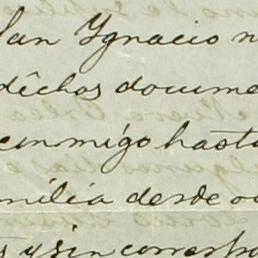 San Ygnacio n
dichos docume
conmigo hasta
milia desde
y sin corresp